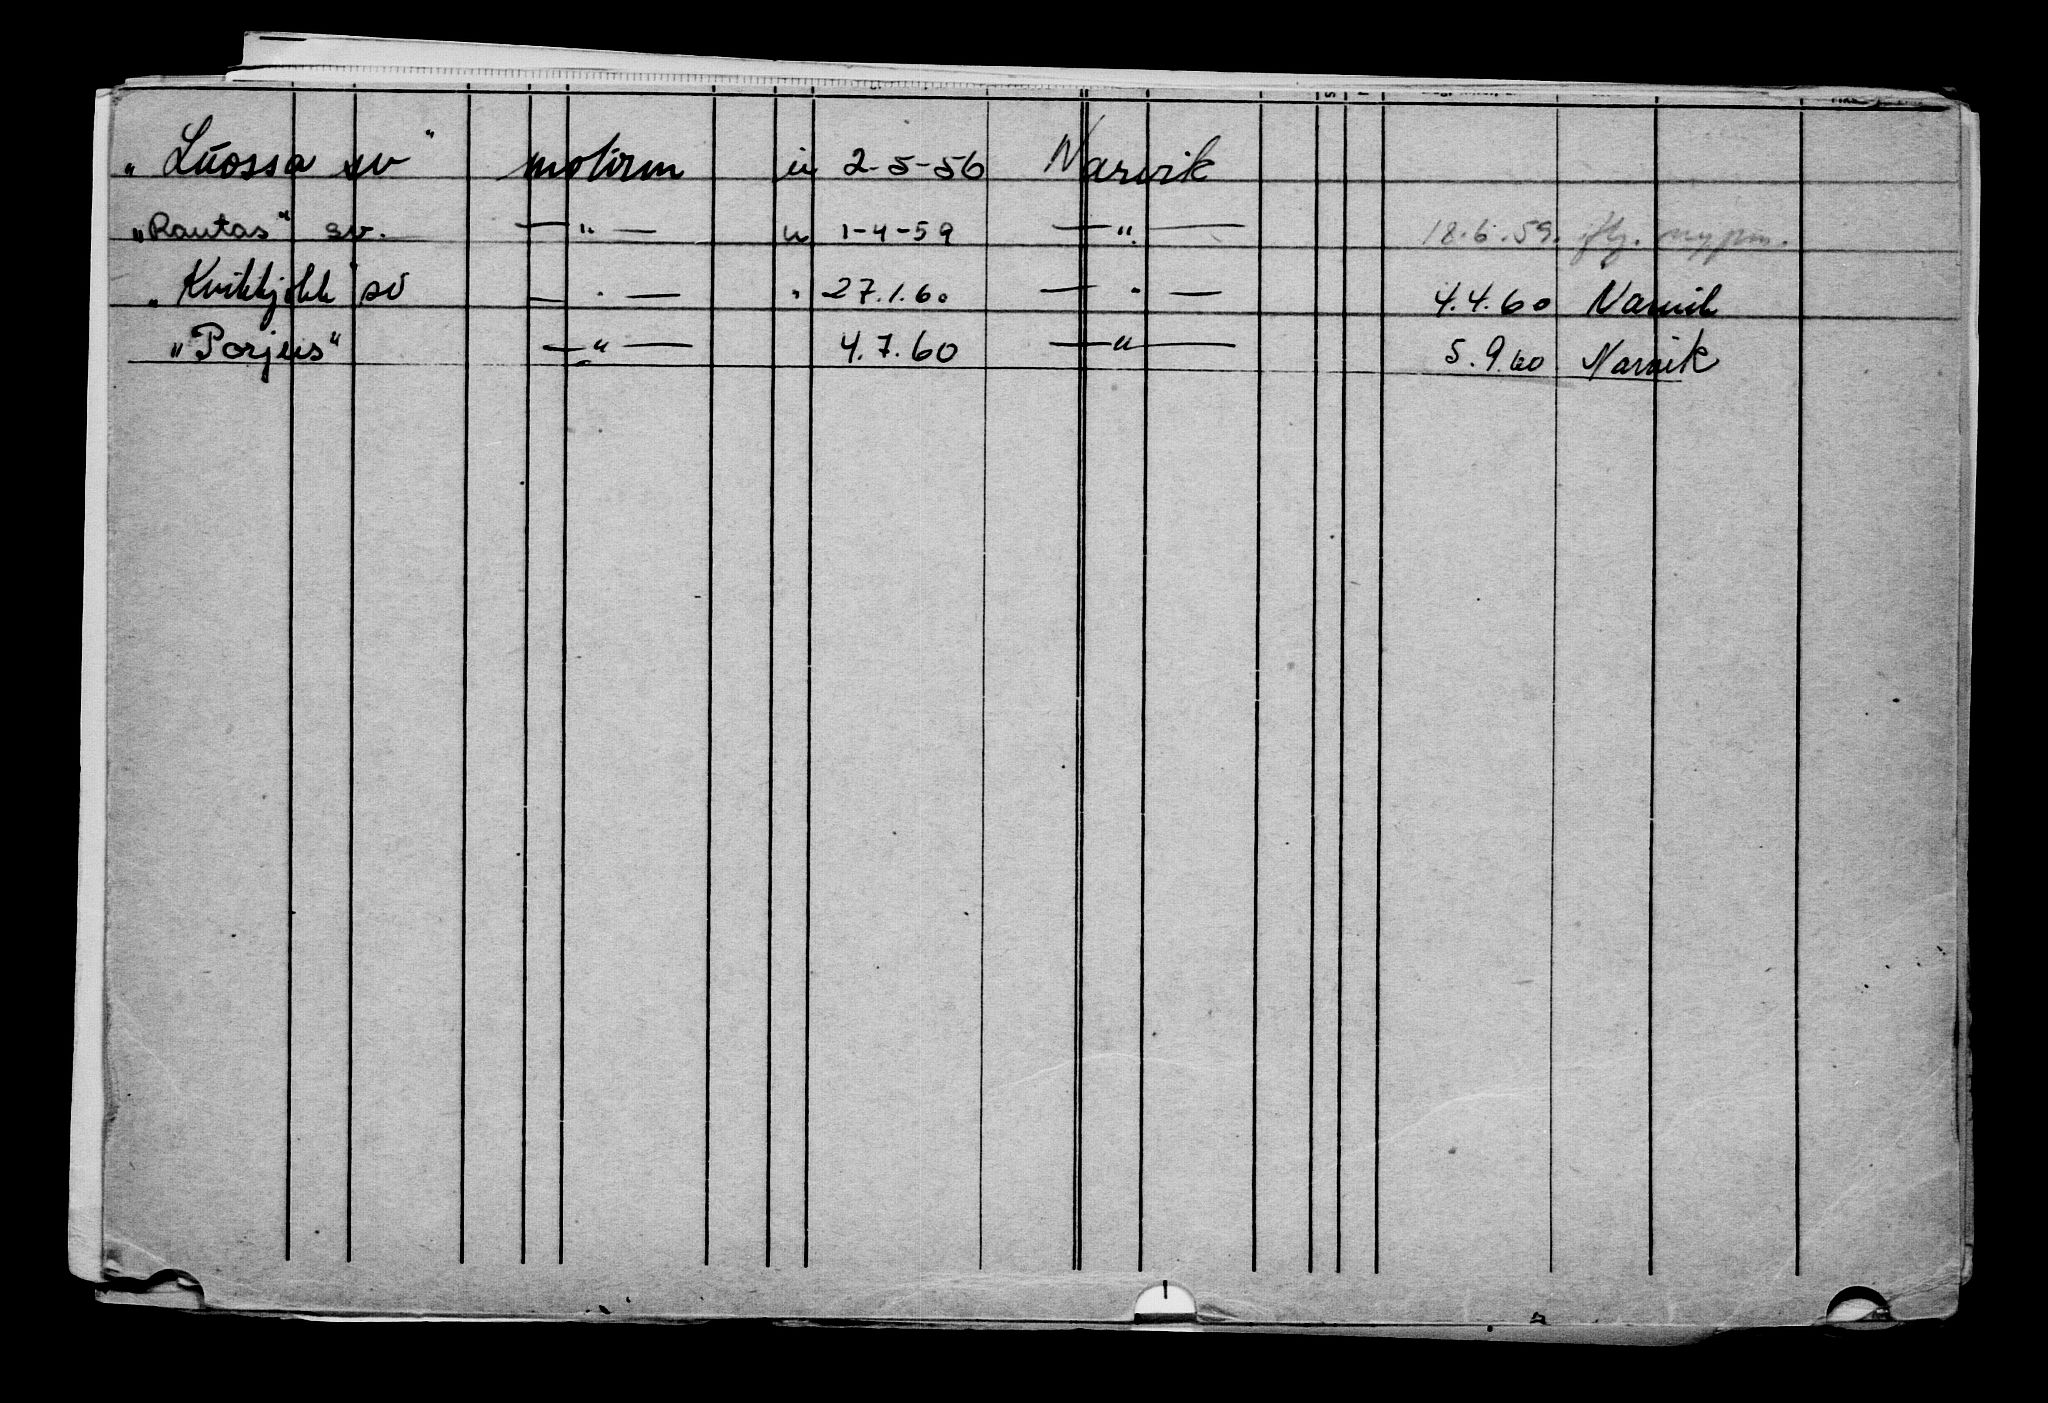 „Luossa sv" motirm u 2-5-56 Narvik
„Rautas" sv. —"— u 1-4-59 —"— 18.6.59. iflg. nypm.
„Kvikkjokk" sv —"— " 27.1.60 —"— 4.4.60 Narvik
„Porjus" —"— 4.7.60 —"— 5.9.60 Narvik